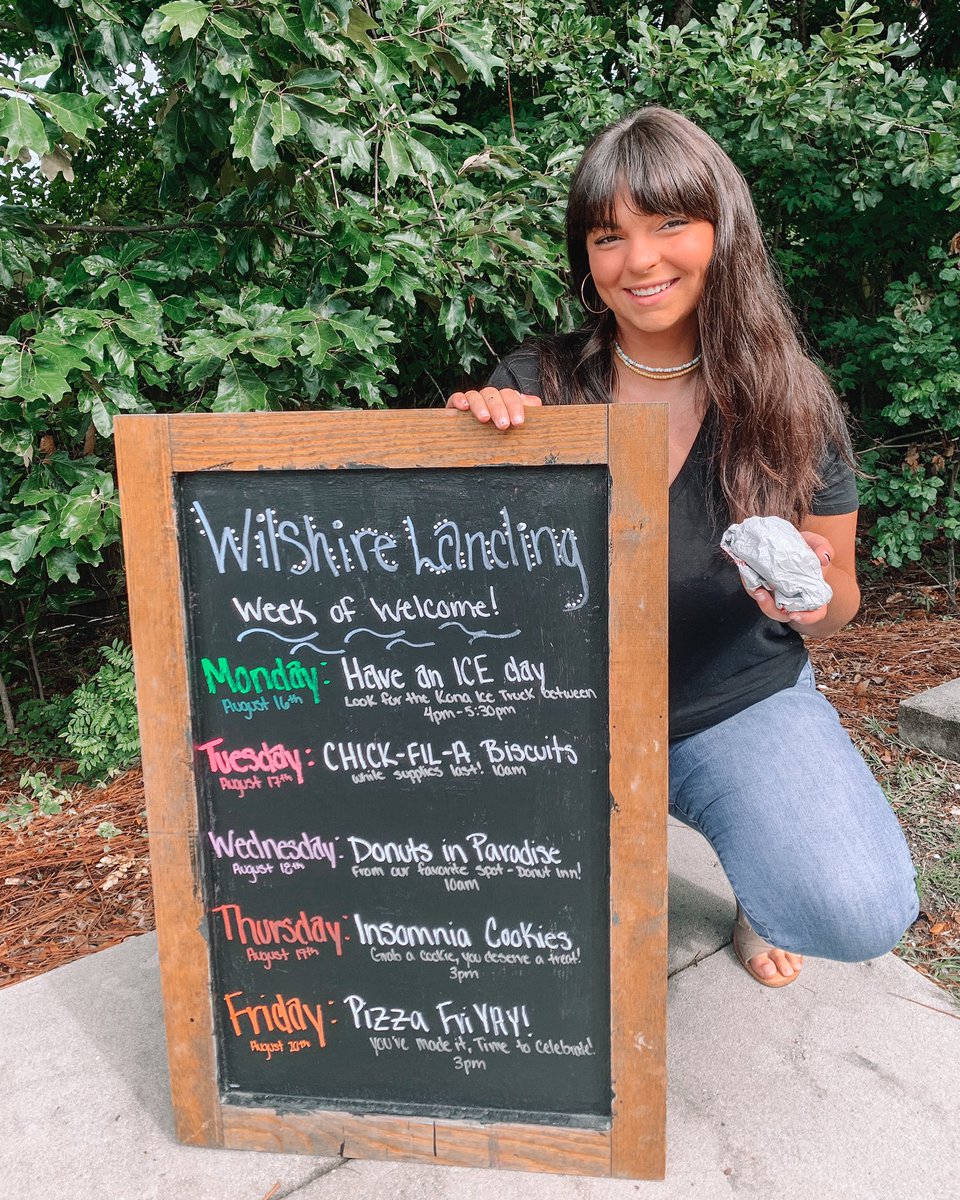 Wilshire Landing
Week of Welcome!
Monday: Have an ICE day
August 16th Look for the Kona Ice Truck between
4pm-5:30pm
Tuesday: CHICK-FIL-A Biscuits
August 17th while supplies last! 10am
Wednesday: Donuts in Paradise
August 18th From our favorite spot - Donut Inn!
10am
Thursday: Insomnia Cookies
August 19th Grab a cookie, you deserve a treat!
3pm
Friday: Pizza FriYAY!
August 20th you've made it, Time to celebrate!
3pm